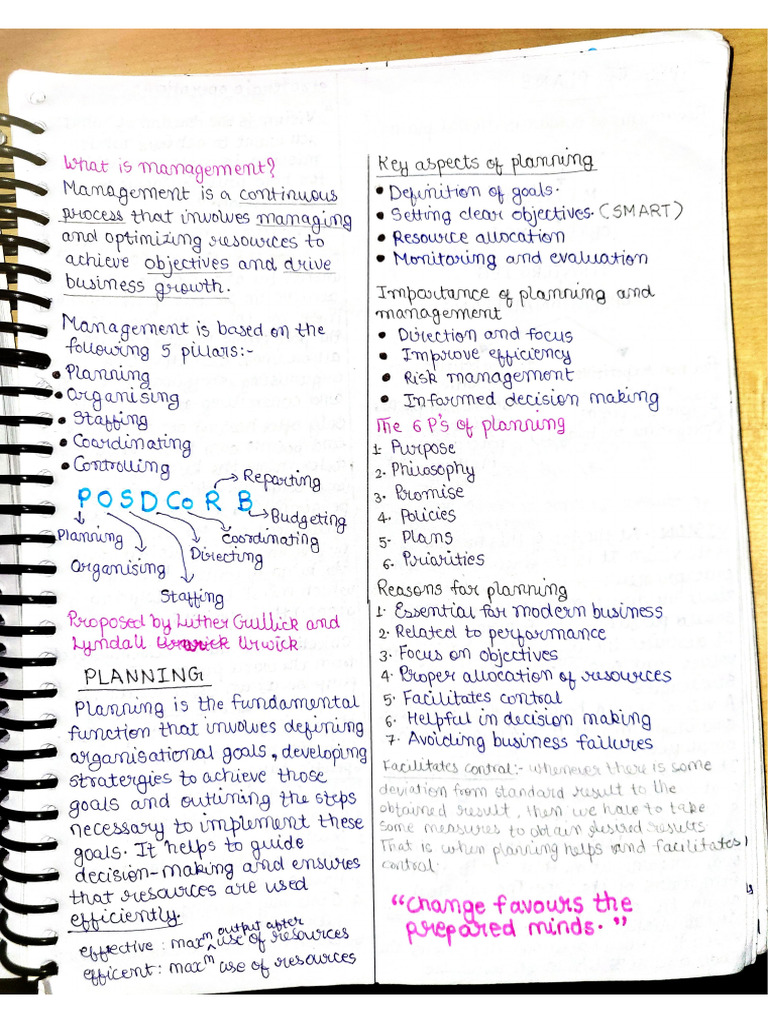 What is management?
Management is a continuous
process that involves managing
and optimizing resources to
achieve objectives and drive
business growth.
Management is based on the
following 5 pillars:-
• Planning
• Organising
• Staffing
• Coordinating
• Controlling
POSDCoRB
Reporting
Budgeting
Coordinating
Directing
Planning
Organising
Staffing
Proposed by Luther Gullick and
Lyndall Urwick
PLANNING
Planning is the fundamental
function that involves defining
organisational goals, developing
stratergies to achieve those
goals and outlining the steps
necessary to implement these
goals. It helps to guide
decision-making and ensures
that resources are used
efficiently.
effective : maxm output after use of resources
efficent : maxm use of resources
Key aspects of planning
• Definition of goals.
• Setting clear objectives. (SMART)
• Resource allocation
• Monitoring and evaluation
Importance of planning and
management
• Direction and focus
• Improve efficiency
• Risk management
• Informed decision making
The 6 P's of planning
1. Purpose
2. Philosophy
3. Promise
4. Policies
5. Plans
6. Priorities
Reasons for planning
1. Essential for modern business
2. Related to performance
3. Focus on objectives
4. Proper allocation of resources
5. Facilitates control
6. Helpful in decision making
7. Avoiding business failures
Facilitates control:- whenever there is some
deviation from standard result to the
obtained result, then we have to take
some measures to obtain desired results.
That is when planning helps and facilitates
control.
"Change favours the
prepared minds."